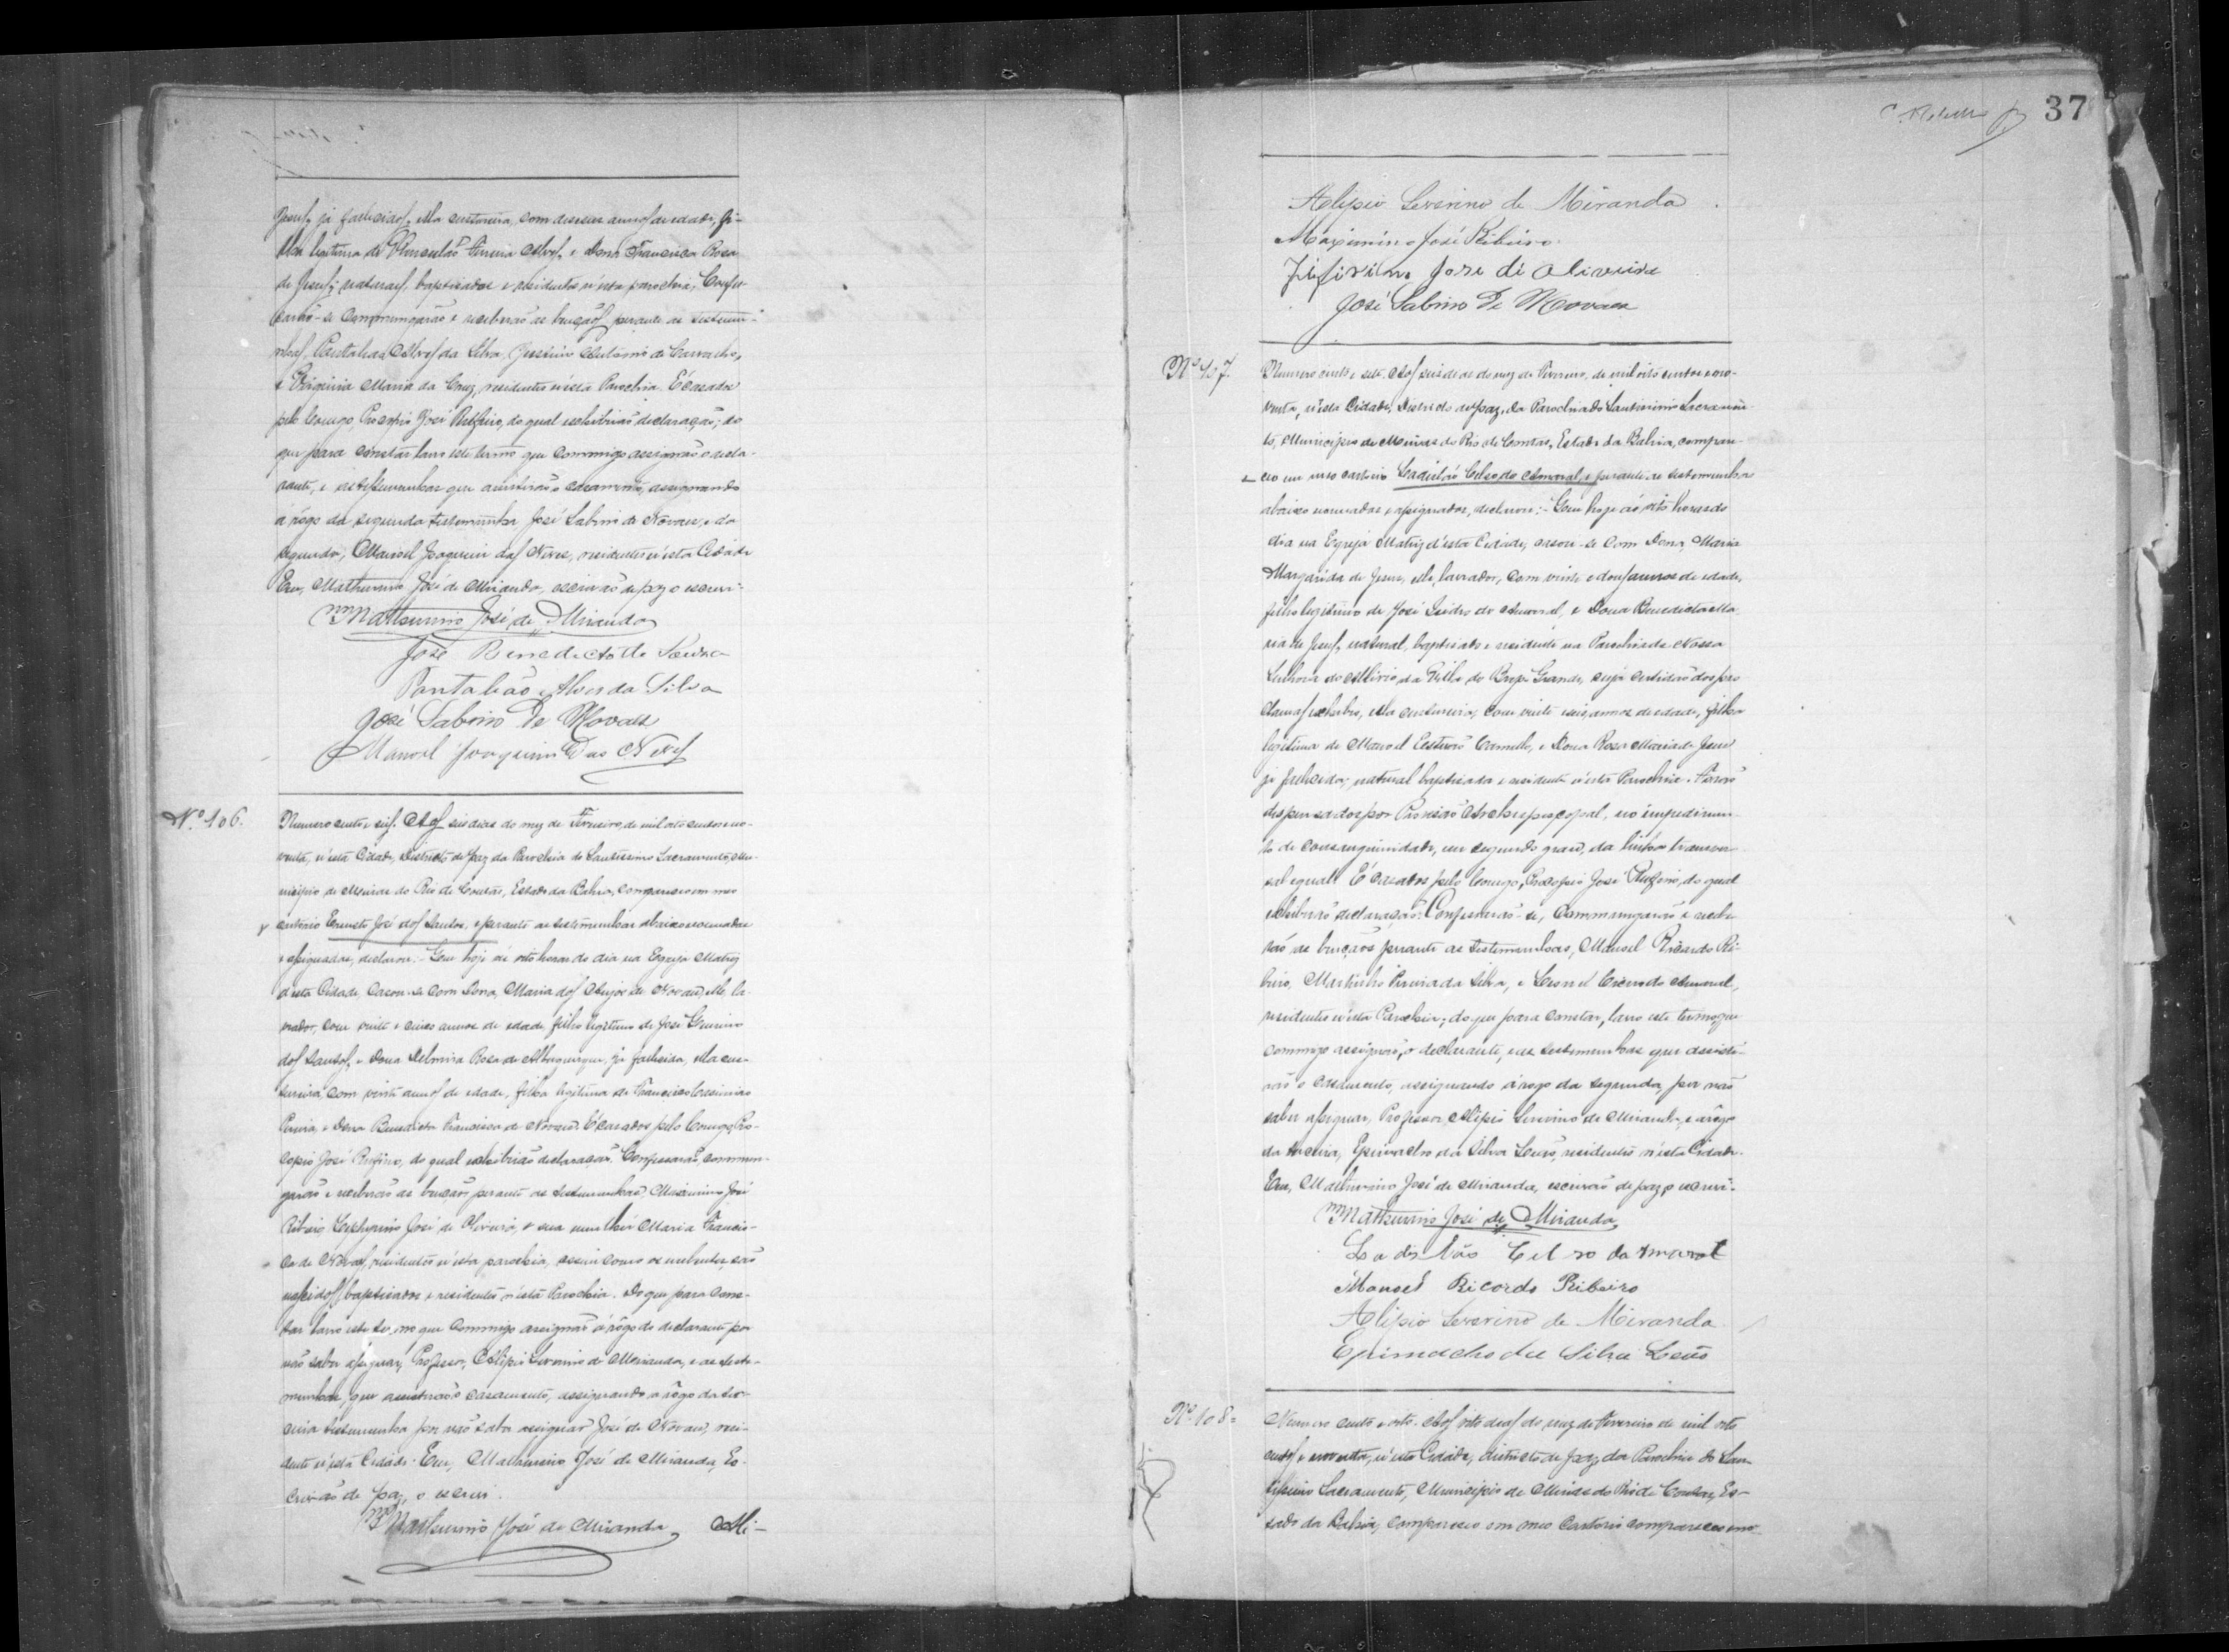 Jesus, já fallecidos, ella custureira, com deseseis annos de edade, fi-
lha legitima de Venceslão Pereira Alves, e Dona Francisca Rosa
de Jesus; naturaes, baptisados e residentes n'esta parochia; Confes-
sarão-se Commungarão e receberão as bençãos perante as testemu-
nhas, Pantalião Alves da Silva, Antonio de Carvalho,
e Maria da Cruz, residentes n'esta Parochia. E' casados
pelo Conego Procopio José Rufino, do qual exhibirão declaração; do
que para constar lavro este termo que commigo assignão o decla-
rante, e as testemunhas que assistirão o casamento, assignando
a rôgo da segunda testemunha José Sabino de Novaes, e da
segunda, Manoel Joaquim das Neves, residentes n'esta Cidade
Eu, Mathurino José de Miranda, escrivão de paz o escrevi-
Mathurino José de Miranda
José Benedicto de Souza
Pantalião Alves da Silva
José Sabino De Novaes
Manoel Joaquim Das Neves
Nº. 106.
Numero cento e seis. Aos seis dias do mez de Fevereiro, de mil oito centos e no-
venta, n'esta Cidade, Districto de paz da Parochia do Santissimo Sacramento, Mu-
nicipio de Minas do Rio de Contas, Estado da Bahia, compareceo em meo
cartorio Ernesto José dos Santos, e perante as testemunhas abaixo nomeadas
e assignadas, declarou:- Que hoje ás oito horas do dia na Egreja Matriz
d'esta Cidade, Casou-se Com Dona, Maria dos Anjos de Novaes, elle, la-
vrador, com vinte e cinco annos de edade, filho legitimo de José
dos Santos, e Dona Delmira Rosa de Albuquerque, já fallecida, ella cus-
tureira, com vinte annos de edade, filha legitima de Francisco Cassimiro
Pereira, e Dona Benedicta Francisca de Novaes. E' casados pelo Conego, Pro-
copio José Rufino, do qual exhibirão declaração. Confessarão, commun-
garão e receberão as bençãos perante as testemunhas, Maximino José
Ribeiro, José de Oliveira, e sua mulher Maria Francis-
ca de Novaes, residentes n'esta parochia, assim como os nubentes, são
nascidos, baptisados e residentes n'esta Parochia. Do que para Cons-
tar lavro este termo que Commigo assignão á rôgo do declarante por
não saber assignar, Professor, Alipio Severino de Miranda, e as teste-
munhas, que assistirão o casamento, assignando a rôgo da ter-
ceira testemunha por não saber assignar José de Novaes, resi-
dente n'esta Cidade. Eu, Mathurino José de Miranda, Es-
crivão de paz, o escrevi.
Mathurino José de Miranda Ali-
37
Alipio Severino de Miranda
Maximino José Ribeiro
Jifirino Jose di Oliveira
José Sabino De Novaes
Nº 107.
Numero cento e sete. Aos seis dias do mez de Fevereiro, de mil oito centos e no-
venta, n'esta Cidade, Districto de paz, da Parochia do Santissimo Sacramen-
to, Municipio de Minas do Rio de Contas, Estado da Bahia, compare-
ceo em meo cartorio Ladislão Celso do Amaral, e perante as testemunhas
abaixo nomeadas e assignadas, declarou:- Que hoje ás oito horas do
dia na Egreja Matriz d'esta Cidade, casou-se Com Dona, Maria
Margarida de Jesus, elle, lavrador, com vinte e dous annos de edade,
filho legitimo de José Izidro do Amaral, e Dona Benedicta Ma-
ria de Jesus, natural, baptisado e residente na Parochia de Nossa
Senhora do Allivio da Villa do Brejo Grande, cuja certidão dos pro
clamas exhibio, ella custureira, com vinte seis annos de edade, filha
legitima de Manoel Camello, e Dona Rosa Maria de Jesus
já fallecida; natural baptisada e residente n'esta Parochia. Forão
dispensados por Provisão Archiepiscopal, no impedimen-
to de consanguinidade, em segundo grau, da linha transver-
sal egual. E' casados pelo Conego, Procopio José Rufino, do qual
exhibirão declaração: Confessarão-se, Commungarão e recebe-
rão as bençãos perante as testemunhas, Manoel Ricardo Ri-
beiro, Martinho Pereira da Silva, e Leonel Cicero do Amaral,
residentes n'esta Parochia; do que para Constar, lavro este termo que
commigo assignão, o declarante, e as testemunhas que assisti-
rão o casamento, assignando á rogo da segunda, por não
saber assignar, Professor Alipio Severino de Miranda, e a rôgo
da terceira, Epimacho da Silva Leão, residentes n'esta Cidade.
Eu, Mathurino José de Miranda, escrivão de paz o escrevi-
Mathurino José de Miranda
Ladislão Celso do Amaral
Manoel Ricardo Ribeiro
Alipio Severino de Miranda
Epimacho da Silva Leão
Nº. 108=
Numero cento e oito. Aos oito dias do mez de Fevereiro de mil oito
centos e noventa, n'esta Cidade, districto de paz, da Parochia do San-
tissimo Sacramento, Municipio de Minas do Rio de Contas, Es-
tado da Bahia, compareceo em meo Cartorio compareceo em